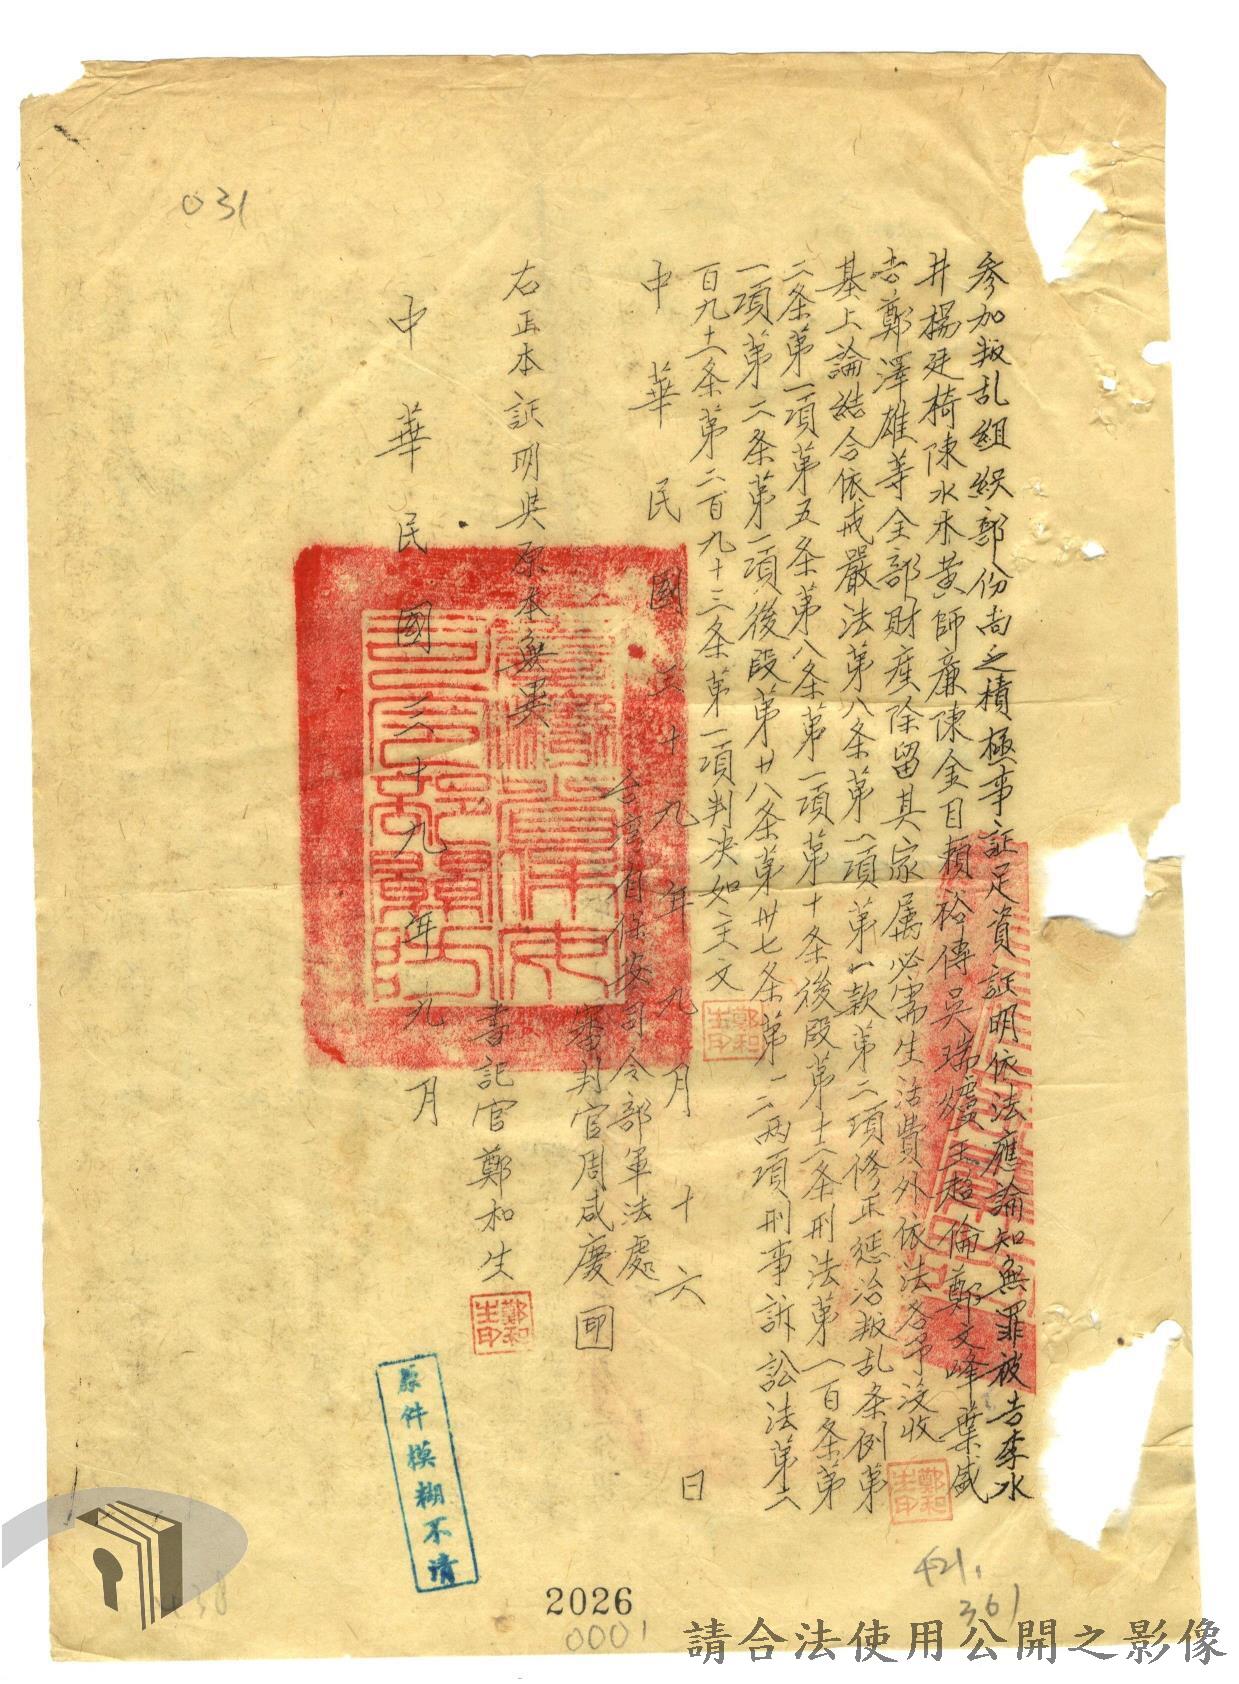 031
參加叛乱組織部份尚乏積極事証足資証明依法應論知無罪被告李水
井楊廷椅陳水木黃師廉陳金目賴裕傳吳瑞爐王超倫鄭文峰葉盛
吉鄭澤雄等全部財產除留其家屬必需生活費外依法各予沒收
基上論結合依戒嚴法第八条第一項第一款第二項修正惩治叛乱条例第
二条第一項第五条第八条第一項第十条後段第十二条刑法第一百条第
一項第二条第一項後段第廿八条第卅七条第一二兩項刑事訴訟法第二
百九十一条第二百九十三条第一項判决如主文
中華民國三十九年九月十六日
台湾省保安司令部軍法處
審判官周咸慶 印
右正本証明與原本無異
書記官鄭和生
中華民國三十九年九月
鄭和生印
鄭和生印
鄭和生印
原件模糊不清
2026
0001
421.
361
請合法使用公開之影像